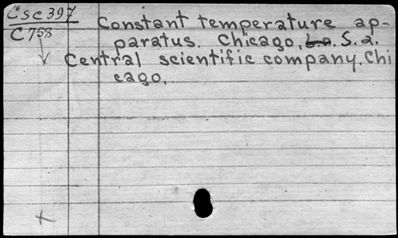 Csc 397
C758
Constant temperature ap-
paratus. Chicago, S. a.
Central scientific company. Chi
cago.